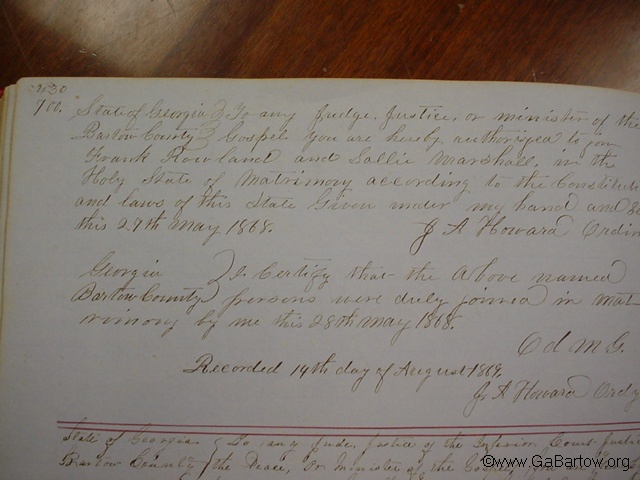 State of Georgia } To any Judge, Justice, or minister of the
Bartow County } Gospel you are hereby authorized to join
Frank Rowland and Sallie Marshall, in the
Holy State of Matrimony according to the Constituti
and laws of this State Given under my hand and
this 27th May 1868. J A Howard Ordin
Georgia } I Certify that the Above named
Bartow County } persons were duly joined in mat-
rimony by me this 28th May 1868.
O d M G.
Recorded 14th day of August 1869.
J A Howard Ordy
State of Georgia } To any Judge Justice of the Inferior Court Justice
Bartow County } the Peace, Or Minister of the Gospel
©www.GaBartow.org